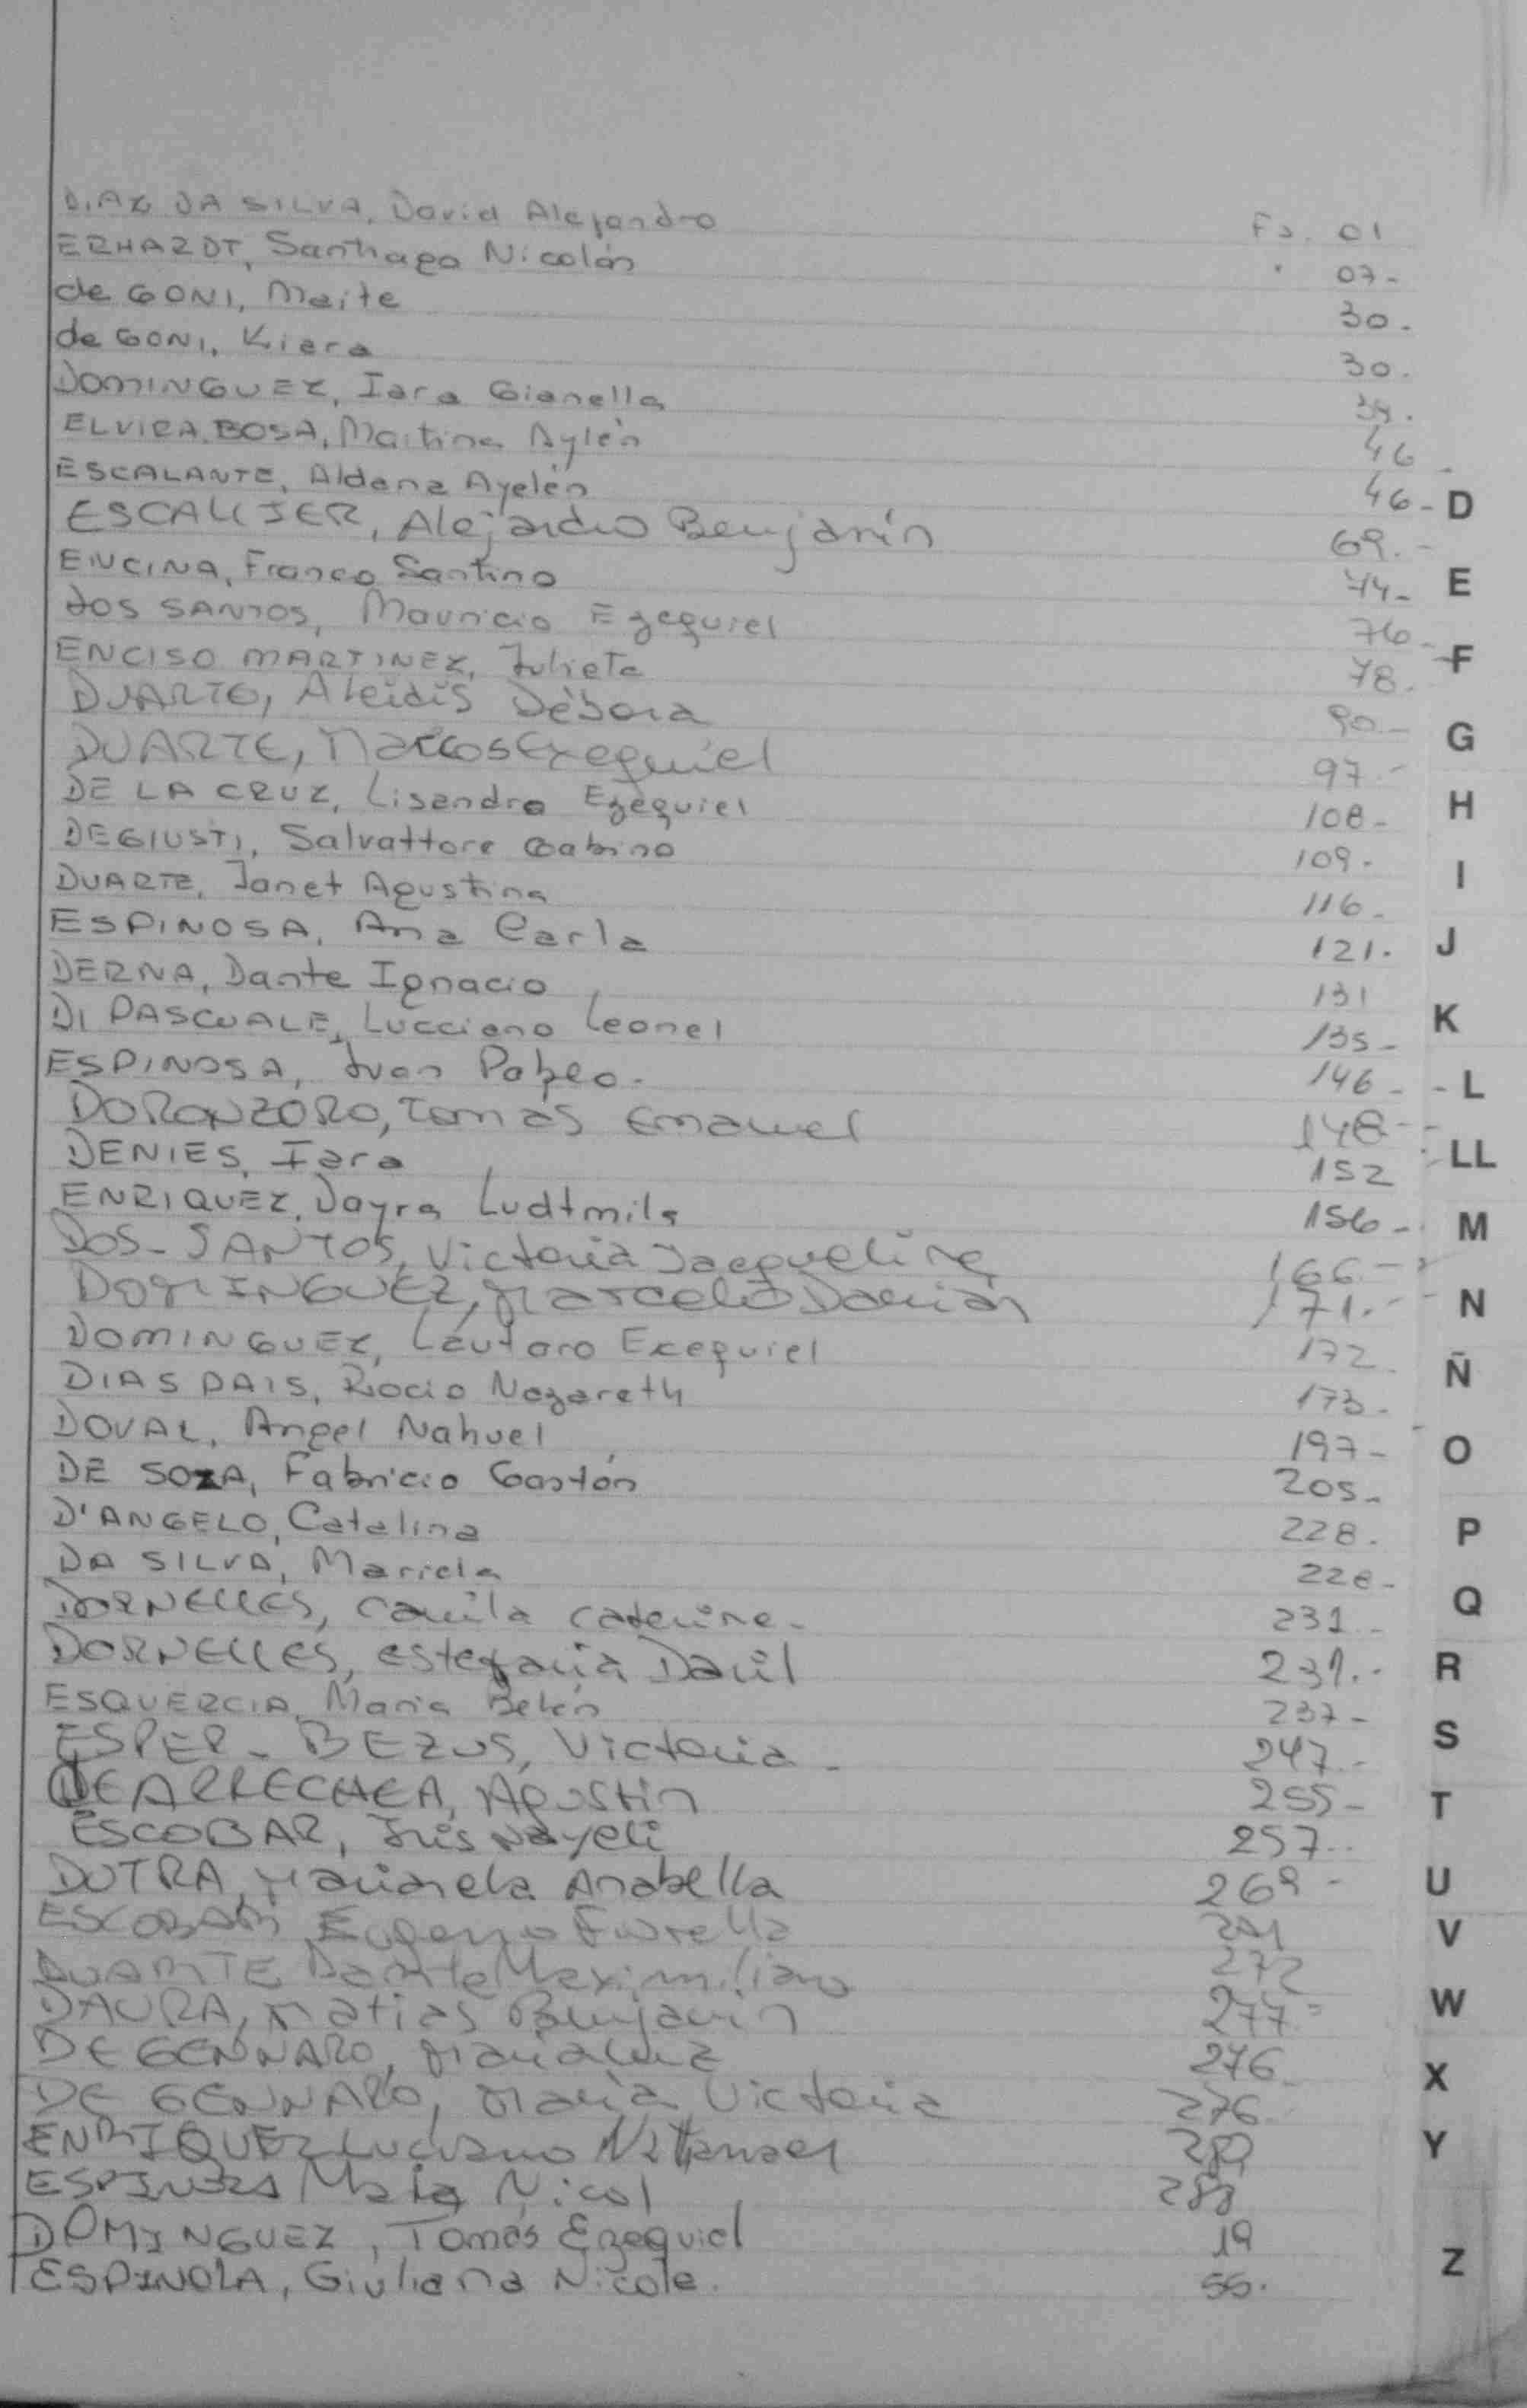 DIAZ DA SILVA, David Alejandro Fs. 01
ERHARDT, Santiago Nicolás " 07-
de GONI, Maite 30.
de GONI, Kiara 30.
DOMINGUEZ, Iara Gianella 34.
ELVIRA BOSA, Martina Aylén 46.
ESCALANTE, Aldana Ayelén 46-
D
ESCALIER, Alejandro Benjamín 69.-
ENCINA, Franco Santino 74-
E
dos SANTOS, Mauricio Ezequiel 76-
ENCISO MARTINEZ, Julieta 78.
F
DUARTE, Aleidis Débora 90.-
G
DUARTE, Marcos Exequiel 97.-
DE LA CRUZ, Lisandro Ezequiel 108-
H
DEGIUSTI, Salvattore Gabino 109-
DUARTE, Janet Agustina 116-
I
ESPINOSA, Ana Carla 121.
J
DERNA, Dante Ignacio 131
DI PASCUALE, Lucciano Leonel 135-
K
ESPINOSA, Juan Pablo. 146-
L
DORONZORO, Tomás Emanuel 148-
DENIES, Iara 152
LL
ENRIQUEZ, Dayra Ludtmila 156-
M
DOS-SANTOS, Victoria Jacqueline 166.-
DOMINGUEZ, Marcelo Damián 171.-
N
DOMINGUEZ, Lautaro Exequiel 172
DIAS PAIS, Rocio Nazareth 173-
Ñ
DOVAL, Angel Nahuel 197-
O
DE SOZA, Fabricio Gastón 205-
D'ANGELO, Catalina 228.
P
DA SILVA, Mariela 228-
DORNELLES, Camila Caterine. 231.-
Q
DORNELLES, Estefania Danil 231.-
R
ESQUERCIA, Maria Belén 237-
ESPER-BEZUS, Victoria. 247.-
S
DEARRECHEA, Agustin 255-
T
ESCOBAR, Iris Nayeli 257..
DUTRA, Marianela Anabella 269-
U
ESCOBAR Eugenia Fiorella
V
DUARTE Dante Maximiliano 272
DAURA, Matias Benjamin 277-
W
DE GENNARO, Maria Luz 276
X
DE GENNARO, Maria Victoria 276
ENRIQUEZ Luciano Nathanael
Y
Maia Nicol 288
DOMINGUEZ, Tomás Ezequiel 19
Z
ESPINOLA, Giuliana Nicole. 55.